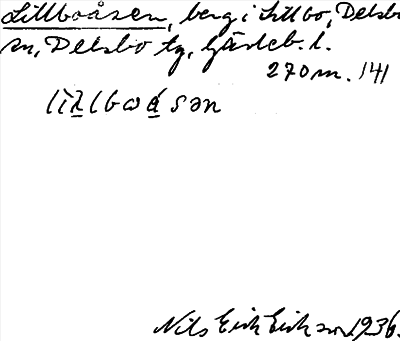 Lillboåsen, berg i Lillbo, Delsbo
sn, Delsbo tg, Gävleb. l.
270 m. 141
Nils Erik Erikson 1936.